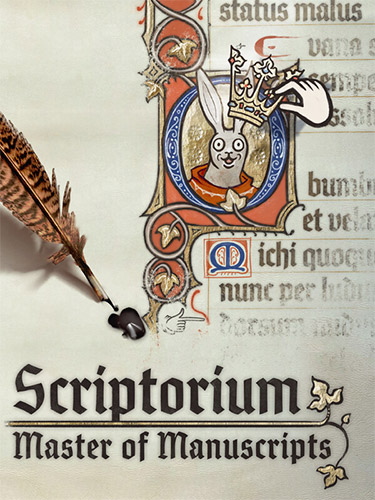 status malus
vana s
sempe
Obumb
et vela
Michi quoqu
nunc per ludu
dorsum
Scriptorium
Master of Manuscripts